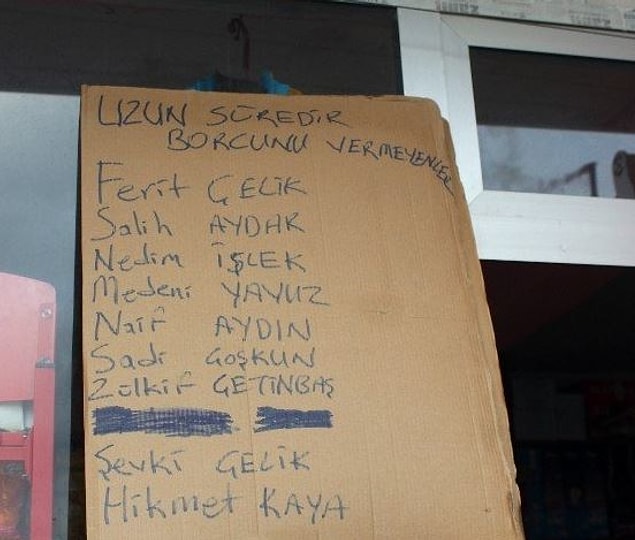 UZUN SÜREDİR
BORCUNU VERMEYENLER
Ferit ÇELİK
Salih AYDAR
Nedim İŞLEK
Medeni YAVUZ
Naif AYDIN
Sadi COŞKUN
Zülkif ÇETİNBAŞ
Şevki ÇELİK
Hikmet KAYA